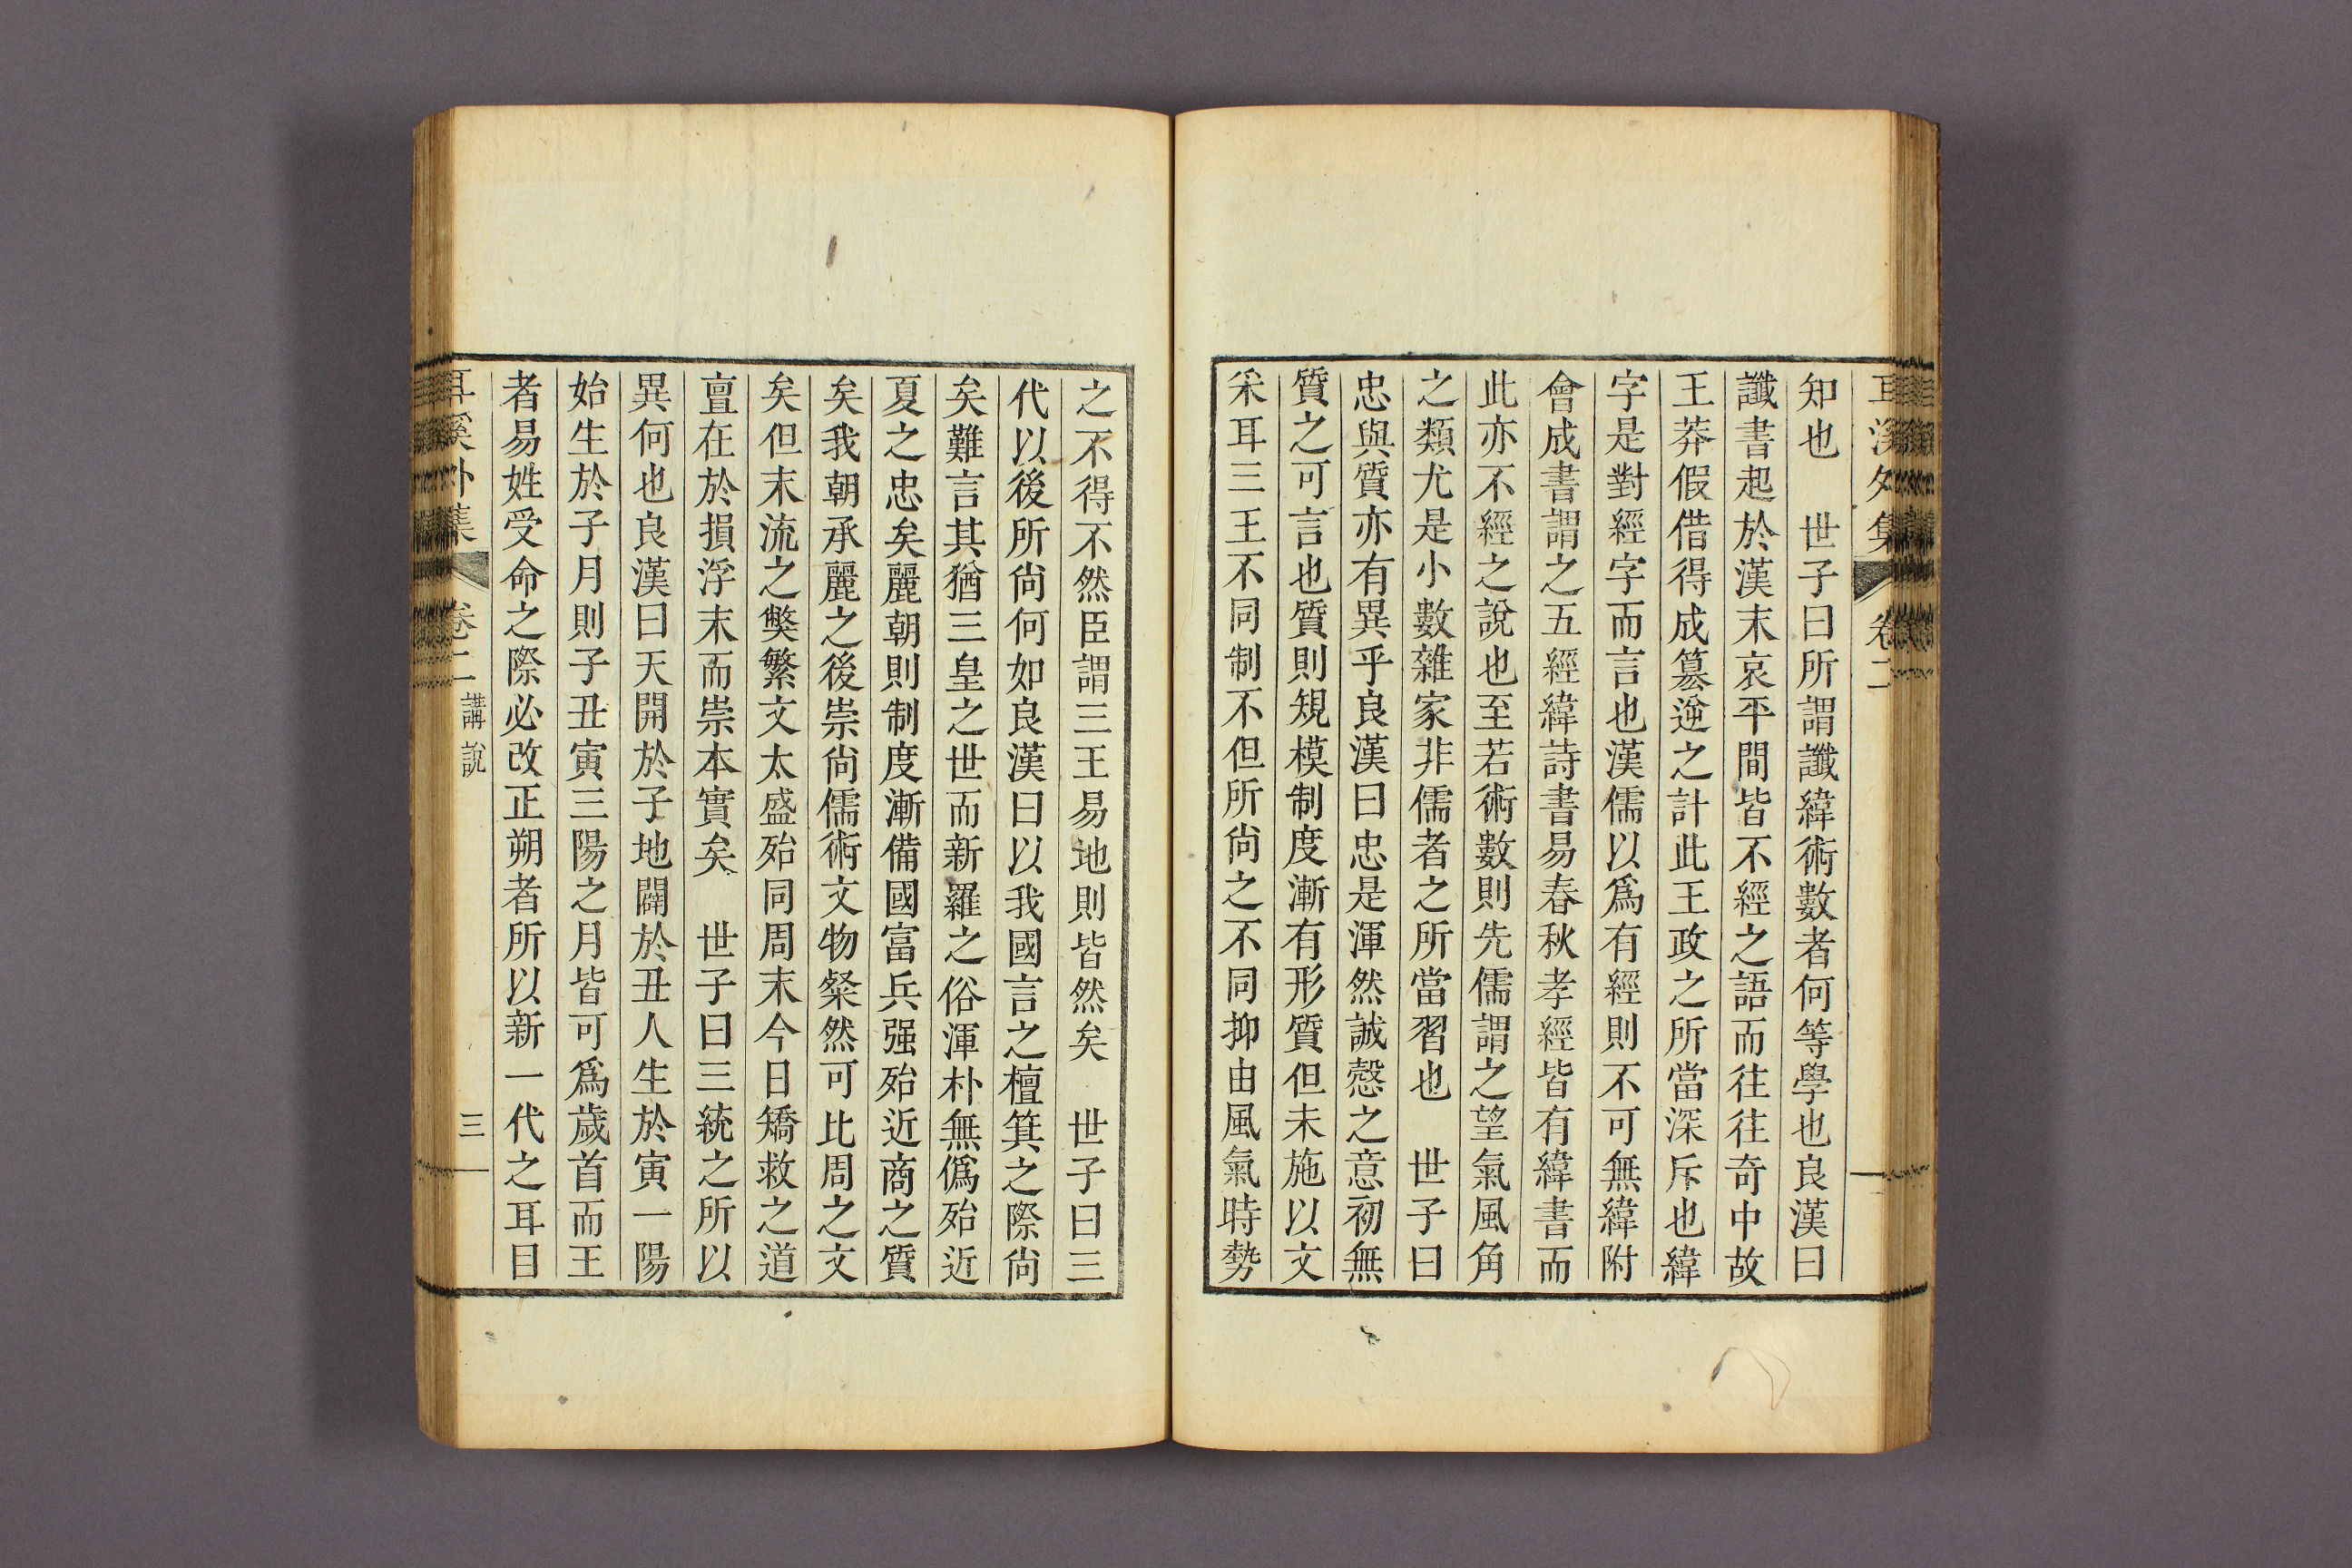 耳溪外集 卷二
知也 世子曰所謂讖緯術數者何等學也良漢曰
讖書起於漢末哀平間皆不經之語而往往奇中故
王莽假借得成簒逆之計此王政之所當深斥也緯
字是對經字而言也漢儒以爲有經則不可無緯附
會成書謂之五經緯詩書易春秋孝經皆有緯書而
此亦不經之說也至若術數則先儒謂之望氣風角
之類尤是小數雜家非儒者之所當習也 世子曰
忠與質亦有異乎良漢曰忠是渾然誠慤之意初無
質之可言也質則規模制度漸有形質但未施以文
采耳三王不同制不但所尙之不同抑由風氣時勢
之不得不然臣謂三王易地則皆然矣 世子曰三
代以後所尙何如良漢曰以我國言之檀箕之際尙
矣難言其猶三皇之世而新羅之俗渾朴無僞殆近
夏之忠矣麗朝則制度漸備國富兵强殆近商之質
矣我朝承麗之後崇尙儒術文物粲然可比周之文
矣但末流之弊繁文太盛殆同周末今日矯救之道
亶在於損浮末而崇本實矣 世子曰三統之所以
異何也良漢曰天開於子地闢於丑人生於寅一陽
始生於子月則子丑寅三陽之月皆可爲歲首而王
者易姓受命之際必改正朔者所以新一代之耳目
耳溪外集 卷二 講說 三